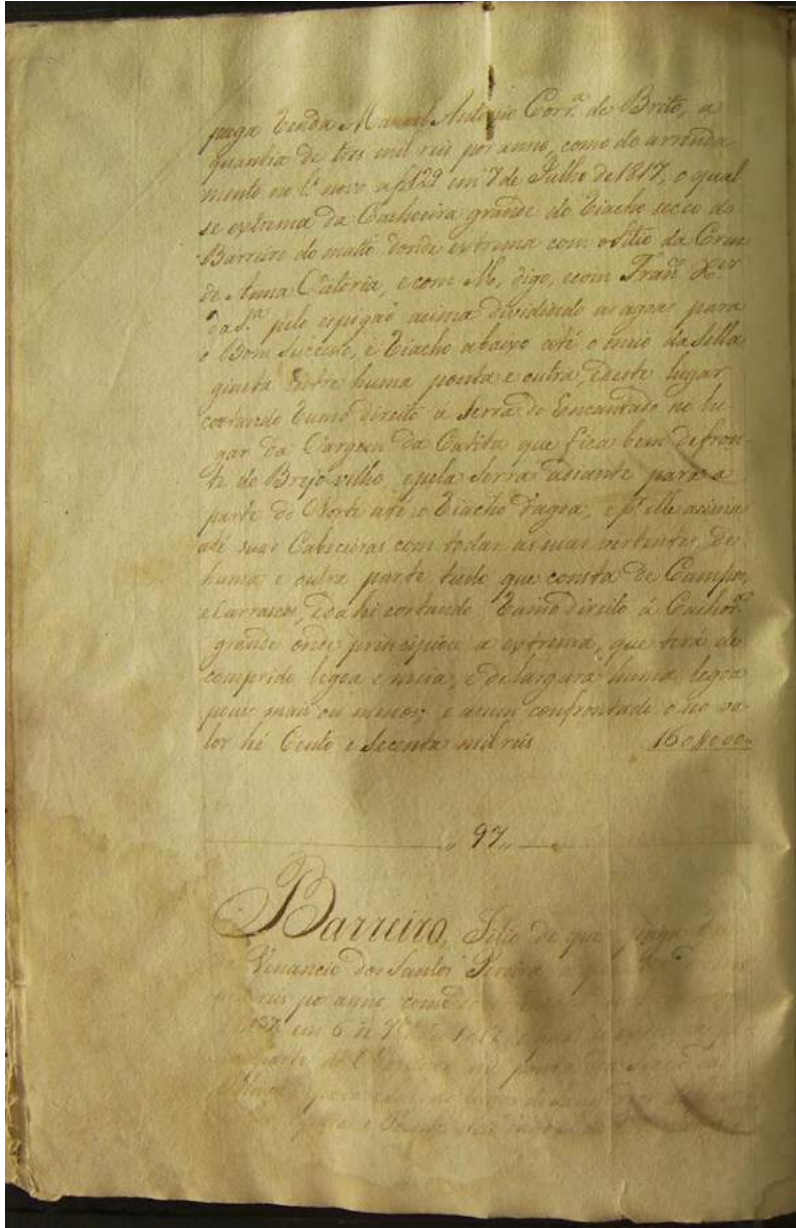 paga Renda Manuel Antonio Corr.ª de Brito, a
quantia de tres mil reis por anno, como do arrenda
mento no L.º novo a f 129 em 7 de Julho de 1817, o qual
se extrema da Cachoeira grande do Riacho secco do
Barreiro do matto donde extrema com o Sitio da Cruz
de Anna Victoria, e com M, digo, e com Fran.co X.er
da S.ª pelo espigaõ acima dividindo as agoas para
o Bom Successo, e Riacho abaixo até o meio da Sella
gineta entre huma ponta e outra, deste lugar
cortando Rumo direito a Serra do Encantado no lu-
gar da Vargem da Catita que fica bem defron-
te do Brejo velho, e pela Serra adiante para a
parte do Norte até o Riacho d'agoa, e p.r elle acima
até suas Cabeceiras com todas as suas vertentes de
huma e outra parte tudo que consta de Campos,
e Carrascos, e dahi cortando Rumo direito á Cachor.ª
grande onde principiou a extrema, que terá de
comprido legoa e meia, e de largura huma legoa
pouco mais ou menos, e assim confrontado o seo va-
lor hé Cento e Secenta mil reis 160$000
97
Barreiro, Sitio de que paga
Venancio dos Santos Pereira a
reis por anno como do
157 em 6 de
parte do